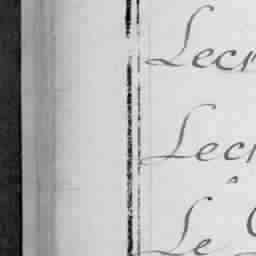 Lecr
Lecr
Le